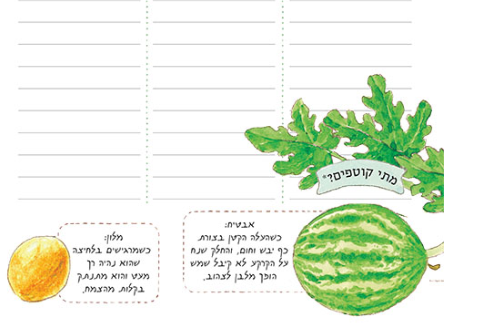 מתי קוטפים?*
אבטיח:
כשהעלה הקטן בצורת
כף יבש וחום, והחלק שנח
על הקרקע לא קיבל שמש
הופך מלבן לצהוב.
מלון:
כשמרגישים בלחיצה
שהוא נהיה רך
מעט והוא מתנתק
בקלות מהצמח.